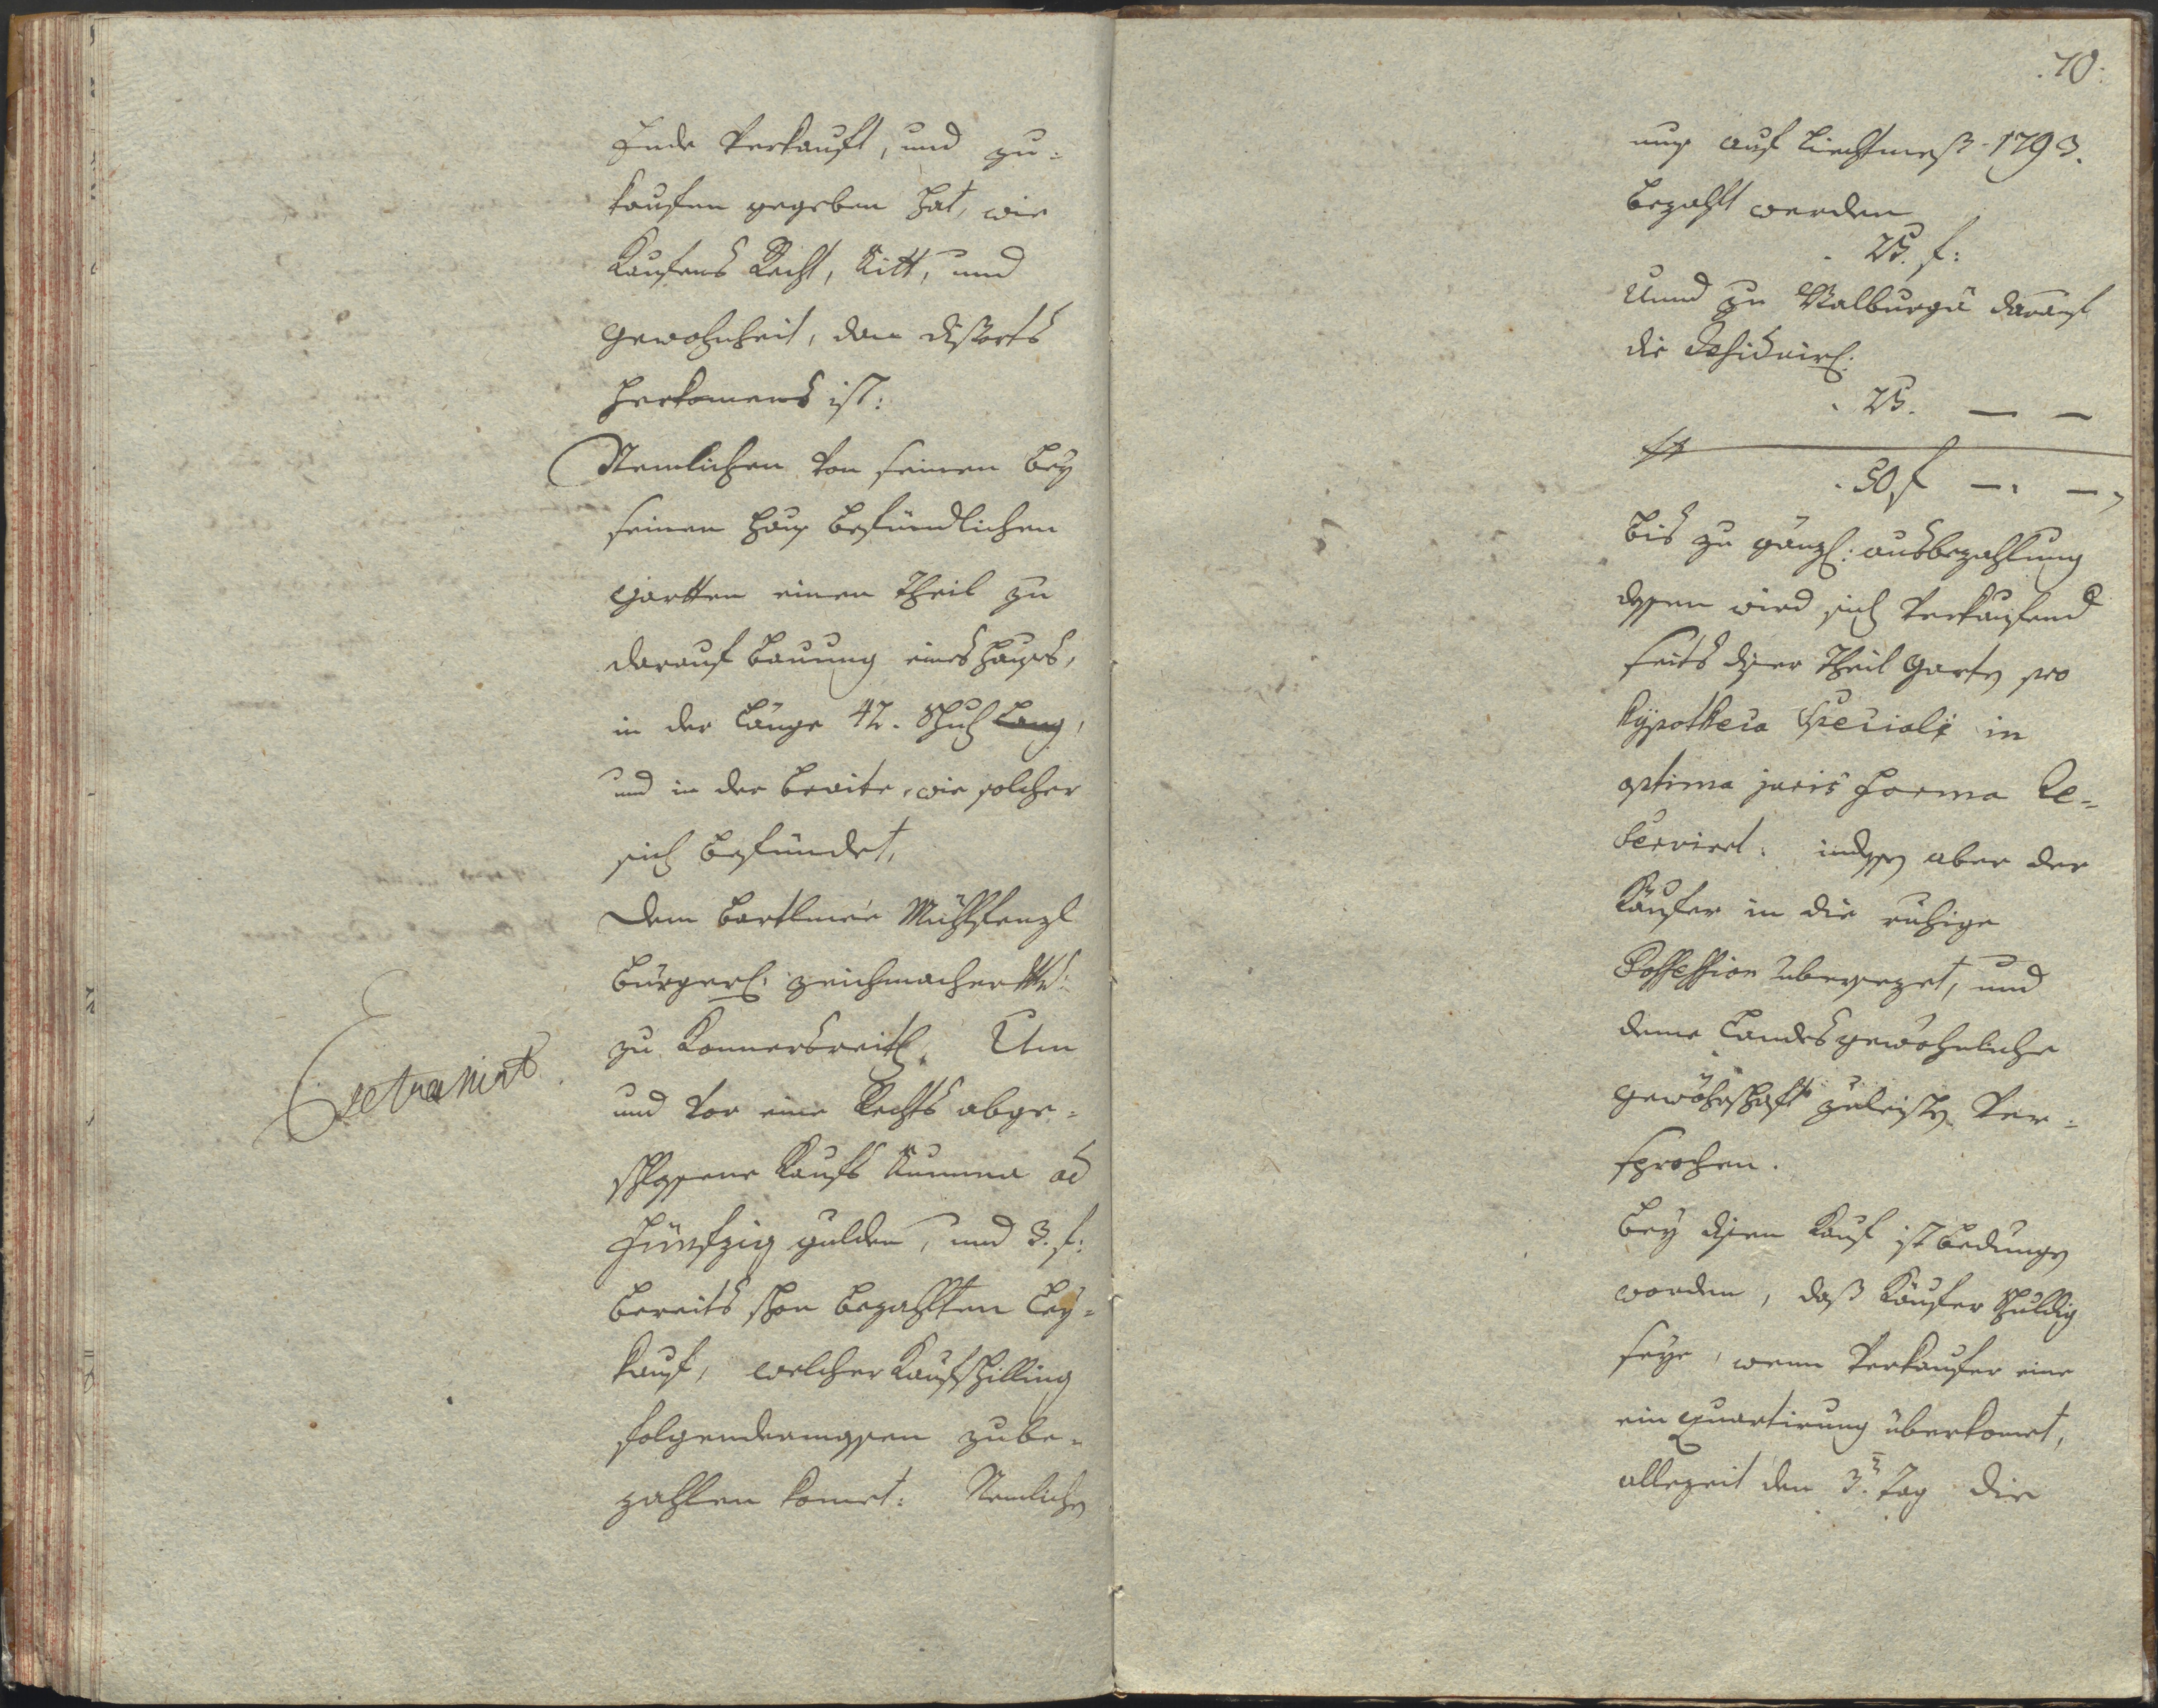 Ende Verkauft, und zu=
kaufen gegeben hat, wie
Kaufens Recht, Sitt, und
gewohnheit, dan dißorts
herkomens ist:
Nemlichen von seinen bey
seinen Haus befündlichen
gartten einen Theil zu
darauf bauung eines Hauses,
in der Länge 42. Schuch lang,
und in der breite, wie solcher
sich befündet,
dem Bartlmeé Mühlstenzl
bürgerl: zeichmacher
zu Konnersreith. Um
und vor eine Rechts abge=
schlossene Kaufs Summa ad
Fünfzig gulden, und 3. f:
bereits schon bezahlten Ley=
kauf, welcher Kaufschilling
folgendermassen zube=
zahlen komet: Nemlichen
Extrahirt
70.
nus auf Liechtmeß 1793.
bezahlt werden
. 25. f:
Unnd zu Walburgä darauf
die
. 25. — —
50 f —. —.
bis zu gänzl: ausbezahlung
dessen wird sich Verkaufend
seits diser Theil Garten pro
hÿpotheca Speciali in
optima juris forma Re=
servirt. indessen aber der
Käufer in die ruhige
Possession übersezet, und
deme Landes gewöhnliche
gewöhrschaft zuleisten Ver=
sprochen.
Bey disen Kauf ist bedungen
worden, daß Käufer schuldig
seye, wenn Verkaufer eine
ein quartirung überkomet,
allezeit den 3.ten Tag die